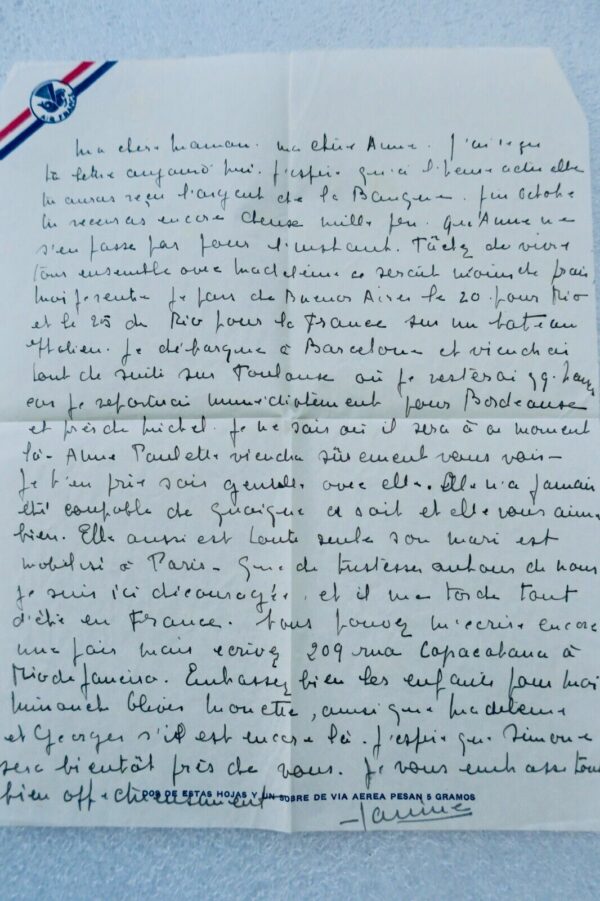 AIR FRANCE
Ma chère Maman. Ma chère Anne. J'ai reçu
ta lettre aujourd'hui. J'espère qu'à l'heure actuelle
tu auras reçu l'argent de la Banque. fin octobre
tu recevras encore deux mille frs. Qu'Anne ne
s'en fasse pas pour l'instant. Tâchez de vivre
tous ensemble avec Madeleine ce serait moins de frais
Moi je rentre je pars de Buenos Aires le 20 pour Rio
et le 25 de Rio pour la France sur un bateau
italien. Je débarque à Barcelone et viendrai
tout de suite sur Toulouse où je resterai qq. heures
car je repartirai immédiatement pour Bordeaux
et près de Michel. Je ne sais où il sera à ce moment
là - Anne Paulette viendra sûrement vous voir -
Je t'en prie sois gentille avec elle. Elle n'a jamais
été coupable de quoique ce soit et elle vous aime
bien. Elle aussi est toute seule son mari est
mobilisé à Paris - Que de tristesses autour de nous
Je suis ici découragée, et il me tarde tant
d'être en France. Vous pouvez m'écrire encore
une fois mais écrivez 209 rua Copacabana à
Rio de Janeiro. Embassez bien les enfants pour moi
Minouch Monette, ainsi que Madeleine
et Georges s'il est encore là. J'espère que Simone
sera bientôt près de vous. Je vous embrasse tous
bien affectueusement
DOS DE ESTAS HOJAS Y UN SOBRE DE VIA AEREA PESAN 5 GRAMOS
Janine